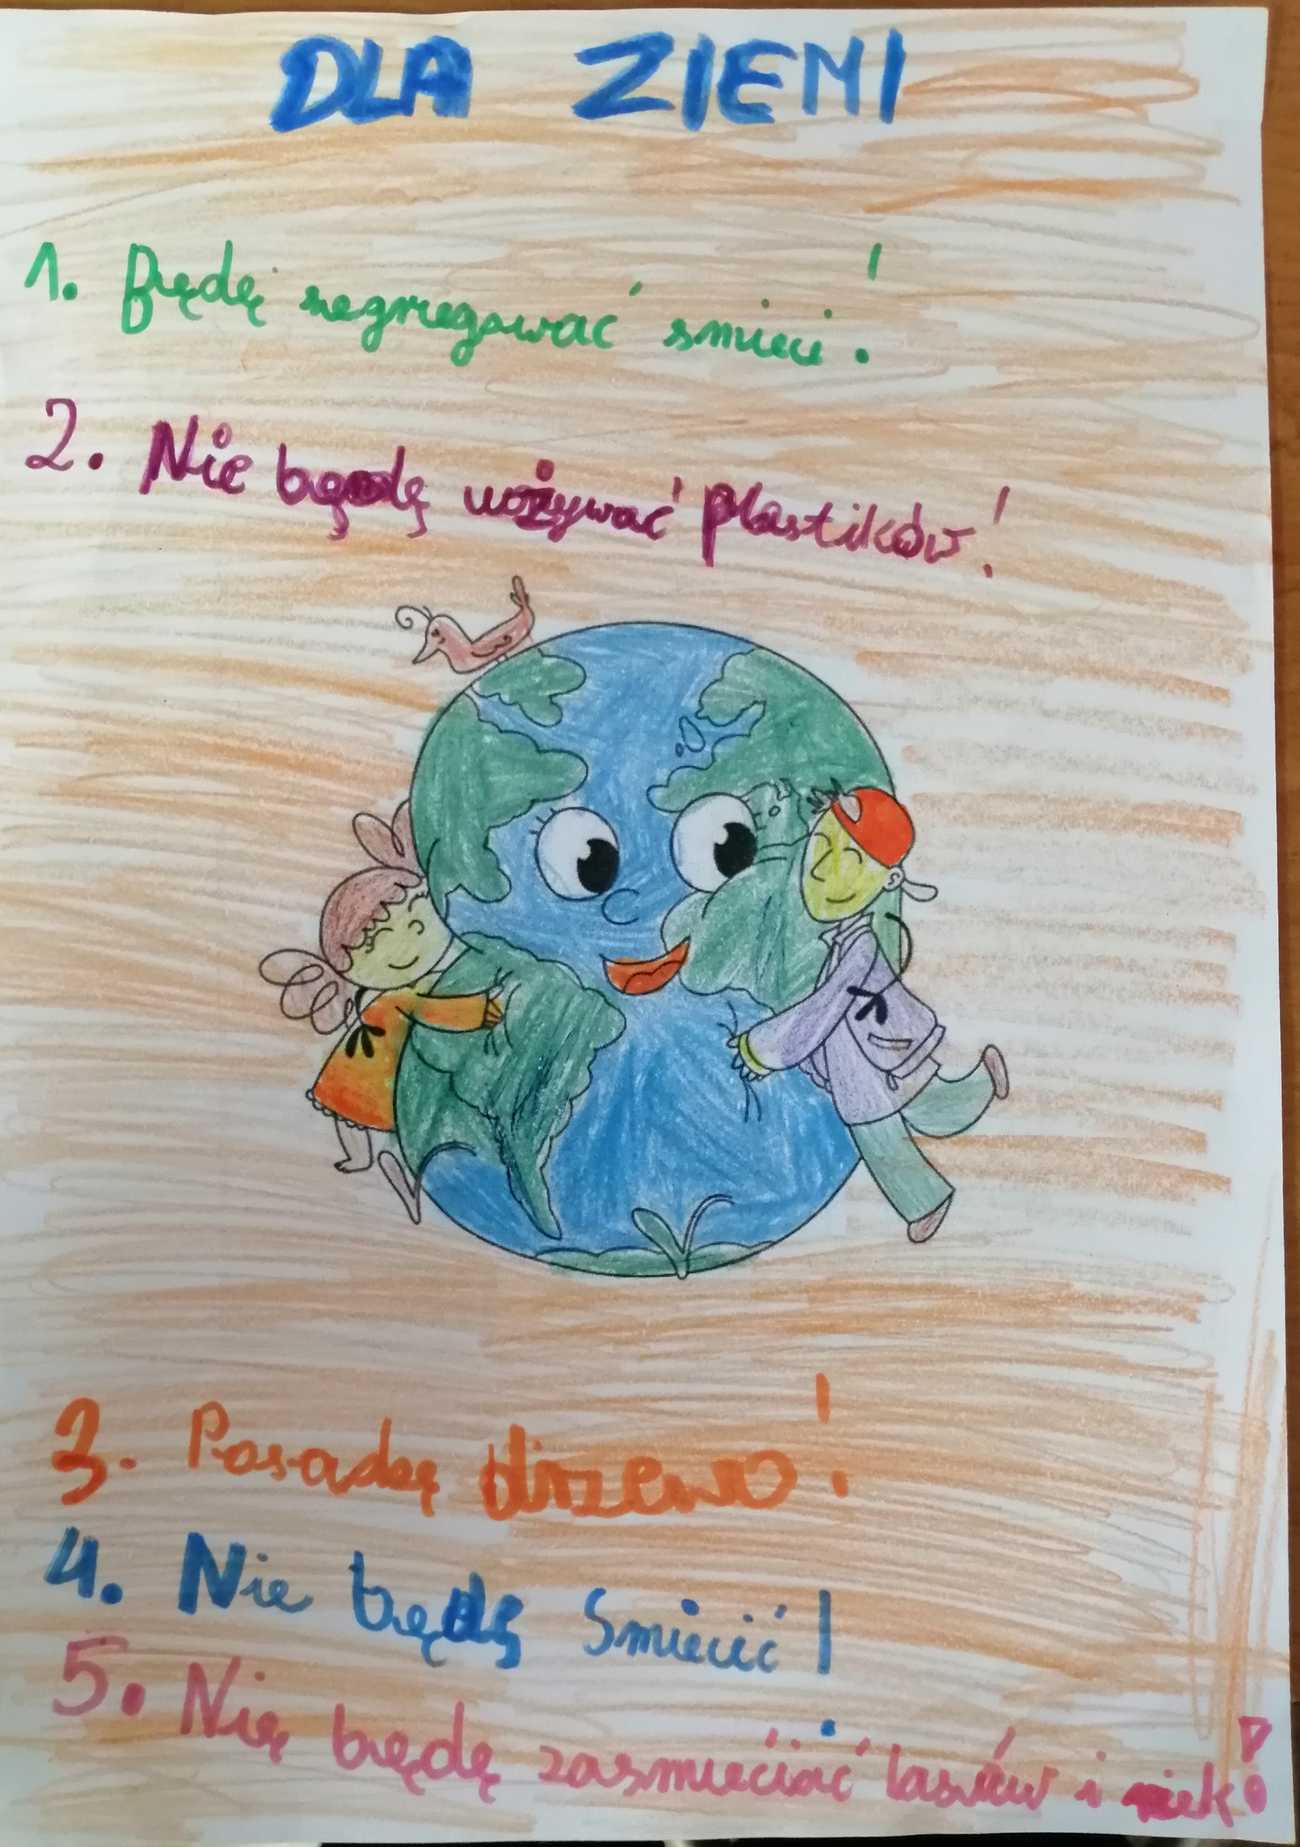 DLA ZIEMI
1. Będę segregować smieci!
2. Nie będę używać plastików!
3. Posadzę drzewo!
4. Nie będę Smiecić!
5. Nię będę zasmiećiać lasów i rzek!